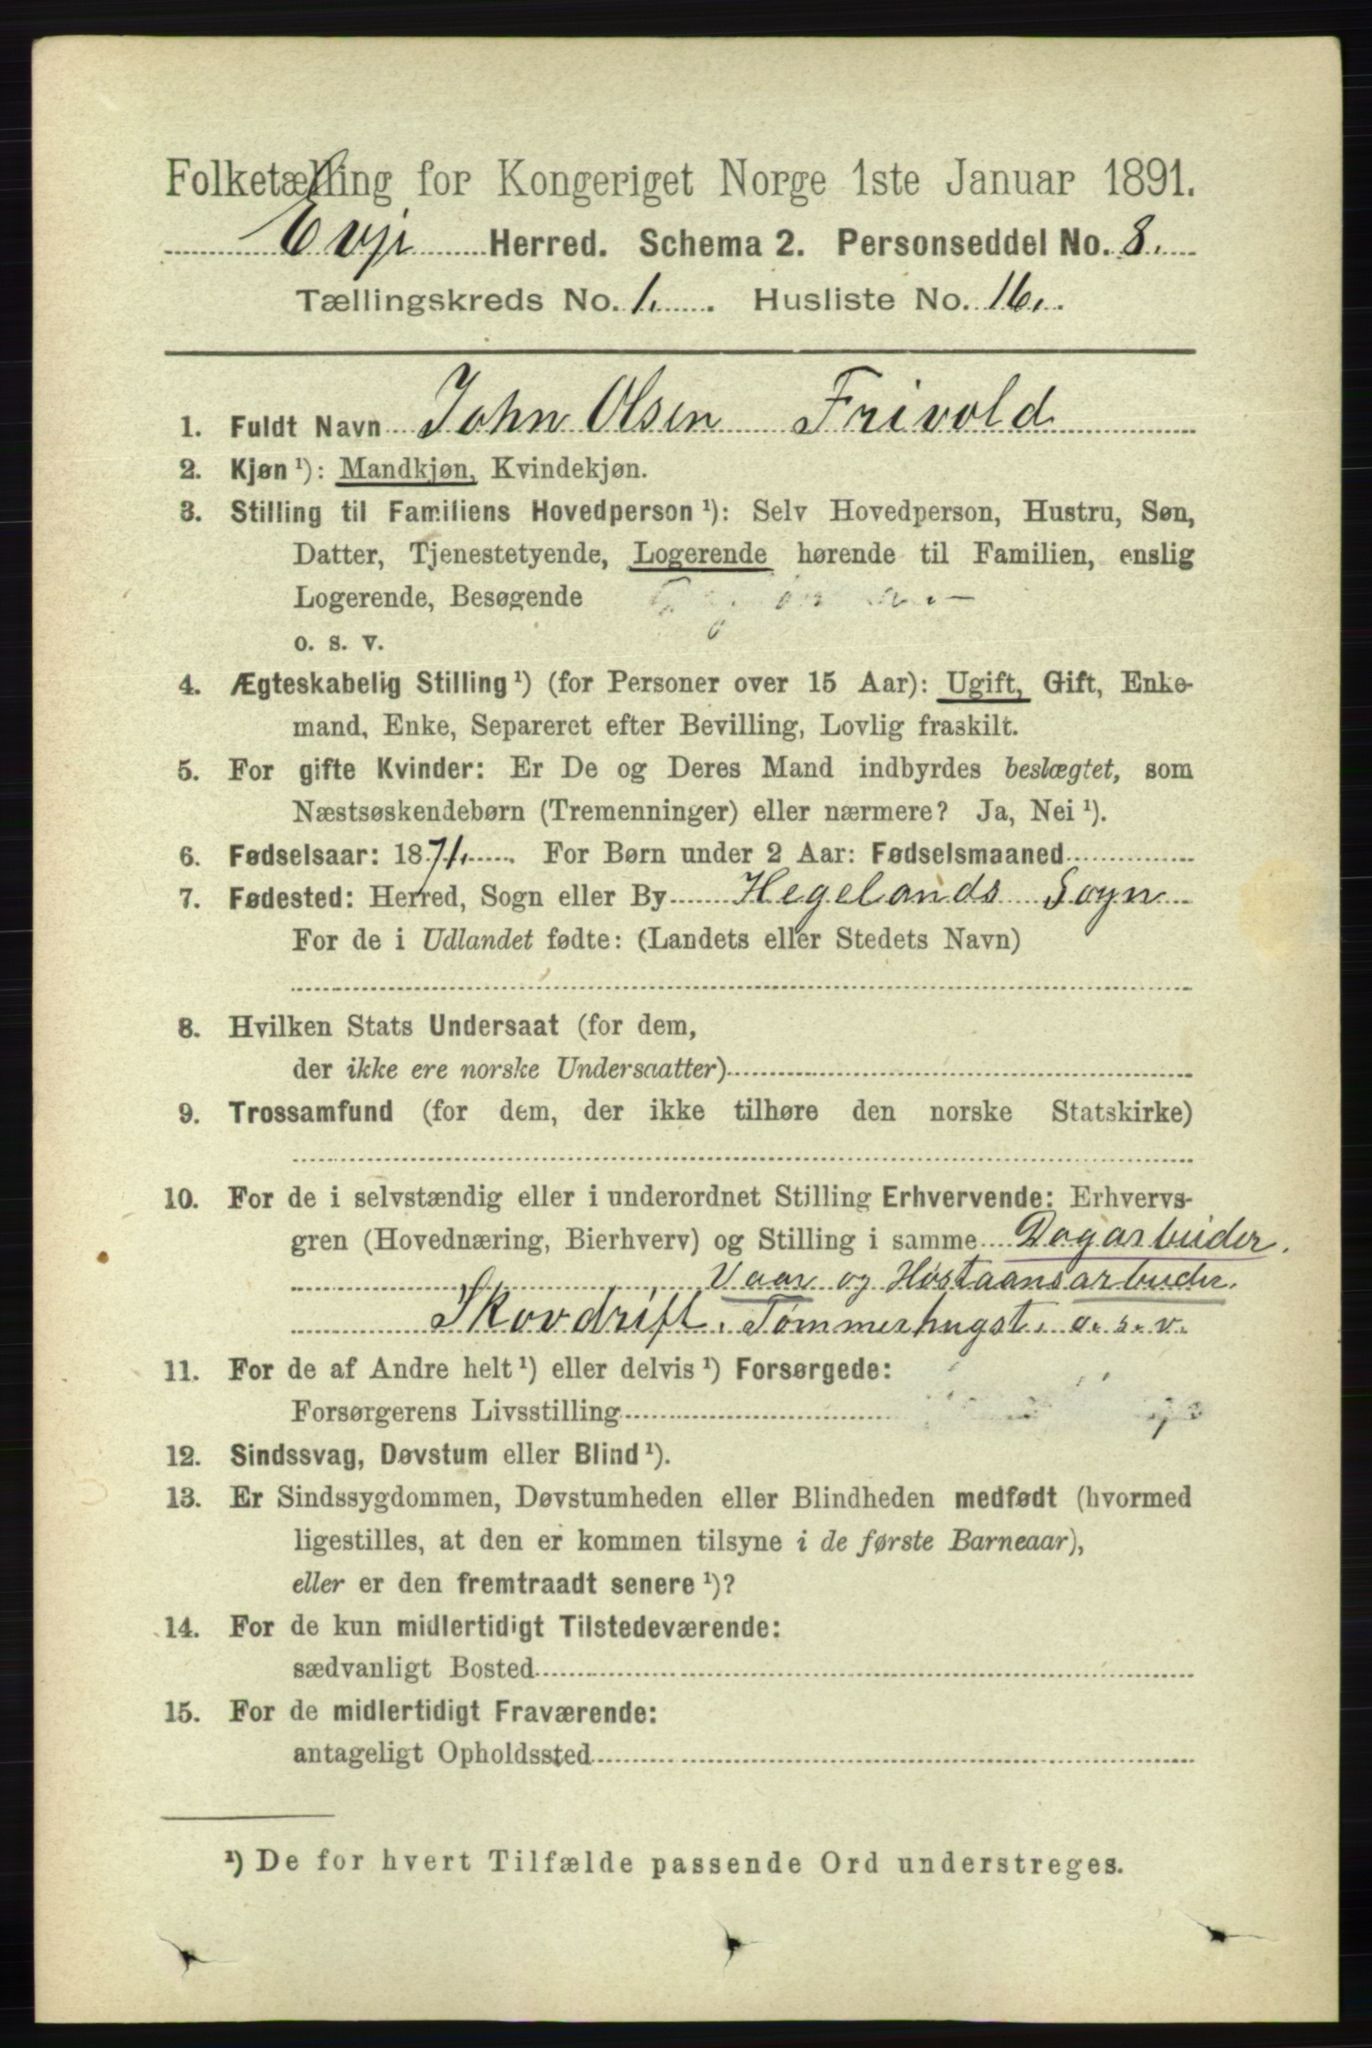 Folketælling for Kongeriget Norge 1ste Januar 1891.
Evje Herred. Schema 2. Personseddel No. 8.
Tællingskreds No. 1. Husliste No. 16.
1. Fuldt Navn John Olsen Frivold
2. Kjøn ¹): Mandkjøn, Kvindekjøn.
3. Stilling til Familiens Hovedperson ¹): Selv Hovedperson, Hustru, Søn,
Datter, Tjenestetyende, Logerende hørende til Familien, enslig
Logerende, Besøgende
o. s. v.
4. Ægteskabelig Stilling ¹) (for Personer over 15 Aar): Ugift, Gift, Enke-
mand, Enke, Separeret efter Bevilling, Lovlig fraskilt.
5. For gifte Kvinder: Er De og Deres Mand indbyrdes beslægtet, som
Næstsøskendebørn (Tremenninger) eller nærmere? Ja, Nei ¹).
6. Fødselsaar: 1871. For Børn under 2 Aar: Fødselsmaaned
7. Fødested: Herred, Sogn eller By Hegelands Sogn
For de i Udlandet fødte: (Landets eller Stedets Navn)
8. Hvilken Stats Undersaat (for dem,
der ikke ere norske Undersaatter)
9. Trossamfund (for dem, der ikke tilhøre den norske Statskirke)
10. For de i selvstændig eller i underordnet Stilling Erhvervende: Erhvervs-
gren (Hovednæring, Bierhverv) og Stilling i samme Dagarbeider.
Vaar og Høstaansarbeider.
Skovdrift. Tømmerhugst. o. s. v.
11. For de af Andre helt ¹) eller delvis ¹) Forsørgede:
Forsørgerens Livsstilling
12. Sindssvag, Døvstum eller Blind ¹).
13. Er Sindssygdommen, Døvstumheden eller Blindheden medfødt (hvormed
ligestilles, at den er kommen tilsyne i de første Barneaar),
eller er den fremtraadt senere ¹)?
14. For de kun midlertidigt Tilstedeværende:
sædvanligt Bosted
15. For de midlertidigt Fraværende:
antageligt Opholdssted
¹) De for hvert Tilfælde passende Ord understreges.